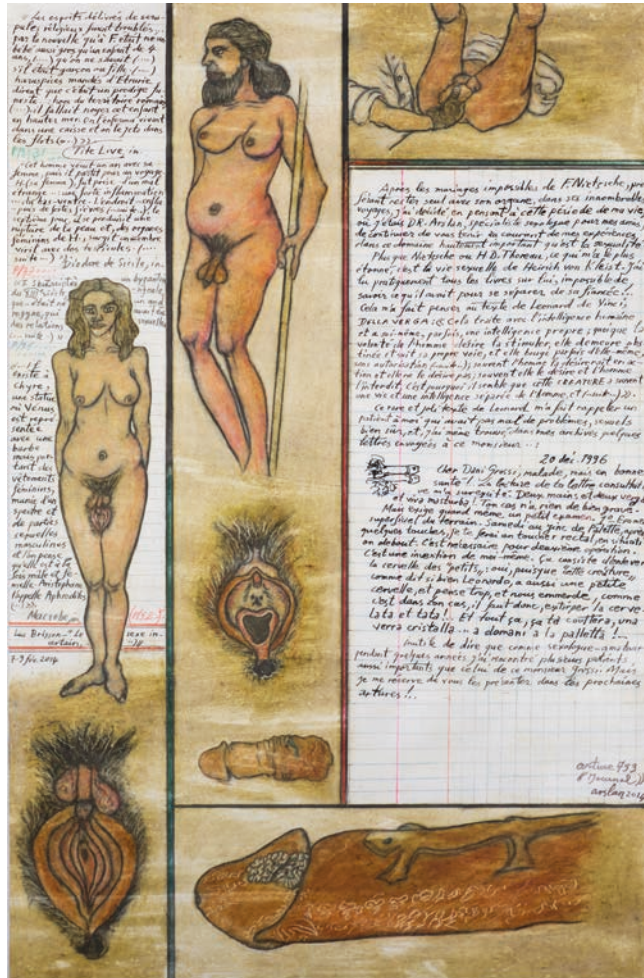 « Les esprits délivrés de scru-
pules religieux furent troublés
par la nouvelle qu'à F. était né un
bébé aussi gros qu'un enfant de 4
ans, (...) qu'on ne savait (...)
s'il était garçon ou fille (...)
haruspices mandés d'Etrurie
dirent que c'était un prodige fu-
neste ... hors du territoire romain
(...) il fallait noyer cet enfant
en haute mer. on l'enferma vivant
dans une caisse et on le jeta dans
les flots (...) »
Tite Live, in
femme, puis il partit pour un voyage
H. (sa femme), fut prise d'un mal
étrange : une forte inflammation
du bas-ventre. L'endroit enfla
septième jour, il se produisit une
rupture de la peau et, des organes
féminins de H., surgit un membre
viril avec des testicules (...
suite...)
Diodore de Sicile, in
existe à
chyre,
une statue
où Vénus
est repré-
sentée
avec une
barbe
mais por-
tant des
vêtements
féminins,
munie d'un
spectre et
de parties
sexuelles
masculines
et l'on pense
qu'elle est à la
fois mâle et fe-
melle. Aristophane
l'appelle Aphroditos
Macrobe,
Luc Brisson - Le sexe in-
certain,
7-9 fév. 2014
Après les mariages impossibles de F. Nietzsche,
faisant rester seul avec son organe, dans ses innombrables
voyages, j'ai décidé en pensant à cette période de ma vie
où j'étais DR. Arslan, spécialiste sexologue pour mes amis,
de continuer de vous tenir au courant de mes expériences
dans ce domaine hautement important qu'est la sexualité.
Plus que Nietzsche ou H D. Thoreau, ce qui m'a le plus
étonné, c'est la vie sexuelle de Heinrich von Kleist. J'ai
lu pratiquement tous les livres sur lui, impossible de
savoir ce qu'il avait pour se séparer de sa fiancée !..
Cela m'a fait penser au texte de Leonard de Vinci,
DELLA VERGA : « Cela traite avec l'intelligence humaine,
et a soi-même, parfois, une intelligence propre ; quoique la
volonté de l'homme désire la stimuler, elle demeure obs-
tinée et suit sa propre voie, et elle bouge parfois d'elle-même,
sans autorisation (...) ; souvent l'homme la désire voir en ac-
tion et elle ne le désire pas ; souvent elle le désire et l'homme
l'interdit. C'est pourquoi il semble que cette CREATURE a souvent
une vie et une intelligence séparée de l'homme, et (suite...) ».
Ce rare et joli texte de Leonard m'a fait rappeler un
patient à moi qui avait pas mal de problèmes, sexuels
bien sûr, et, j'ai même trouvé dans mes archives quelques
lettres envoyées à ce monsieur ... :
20 dei. 1996
Cher Dani Grossi, malade, mais en bonne
santé ! La lecture de ta lettre consultati-
ve m'a surexcité. Deux mains et deux verges
et viva masturba ! Ton cas n'a rien de bien grave.
Mais exige quand même, un petit examen. Je ferai
superficiel du terrain. Samedi au zinc de Palette après
quelques touches, je te ferai un toucher rectal, en situation
debout. C'est nécessaire pour deuxième opération.
C'est une invention de moi-même. Ça consiste d'enlever
la cervelle des "petits", oui, puisque cette créature,
comme dit si bien Leonardo, a aussi une petite
cervelle, et pense trop, et nous emmerde, comme
c'est dans ton cas, il faut donc, extirper la cerve-
lata et tata !.. Et tout ça, ça te coûtera, una
verra cristalla... a domani a la palletta !
Inutile de dire que comme sexologue-amateur
pendant quelques années j'ai rencontré plusieurs patients,
aussi importants que celui de ce monsieur Grossi. Mais
je me réserve de vous les présenter dans les prochaines
artures !..
arture 733
arslan 2014